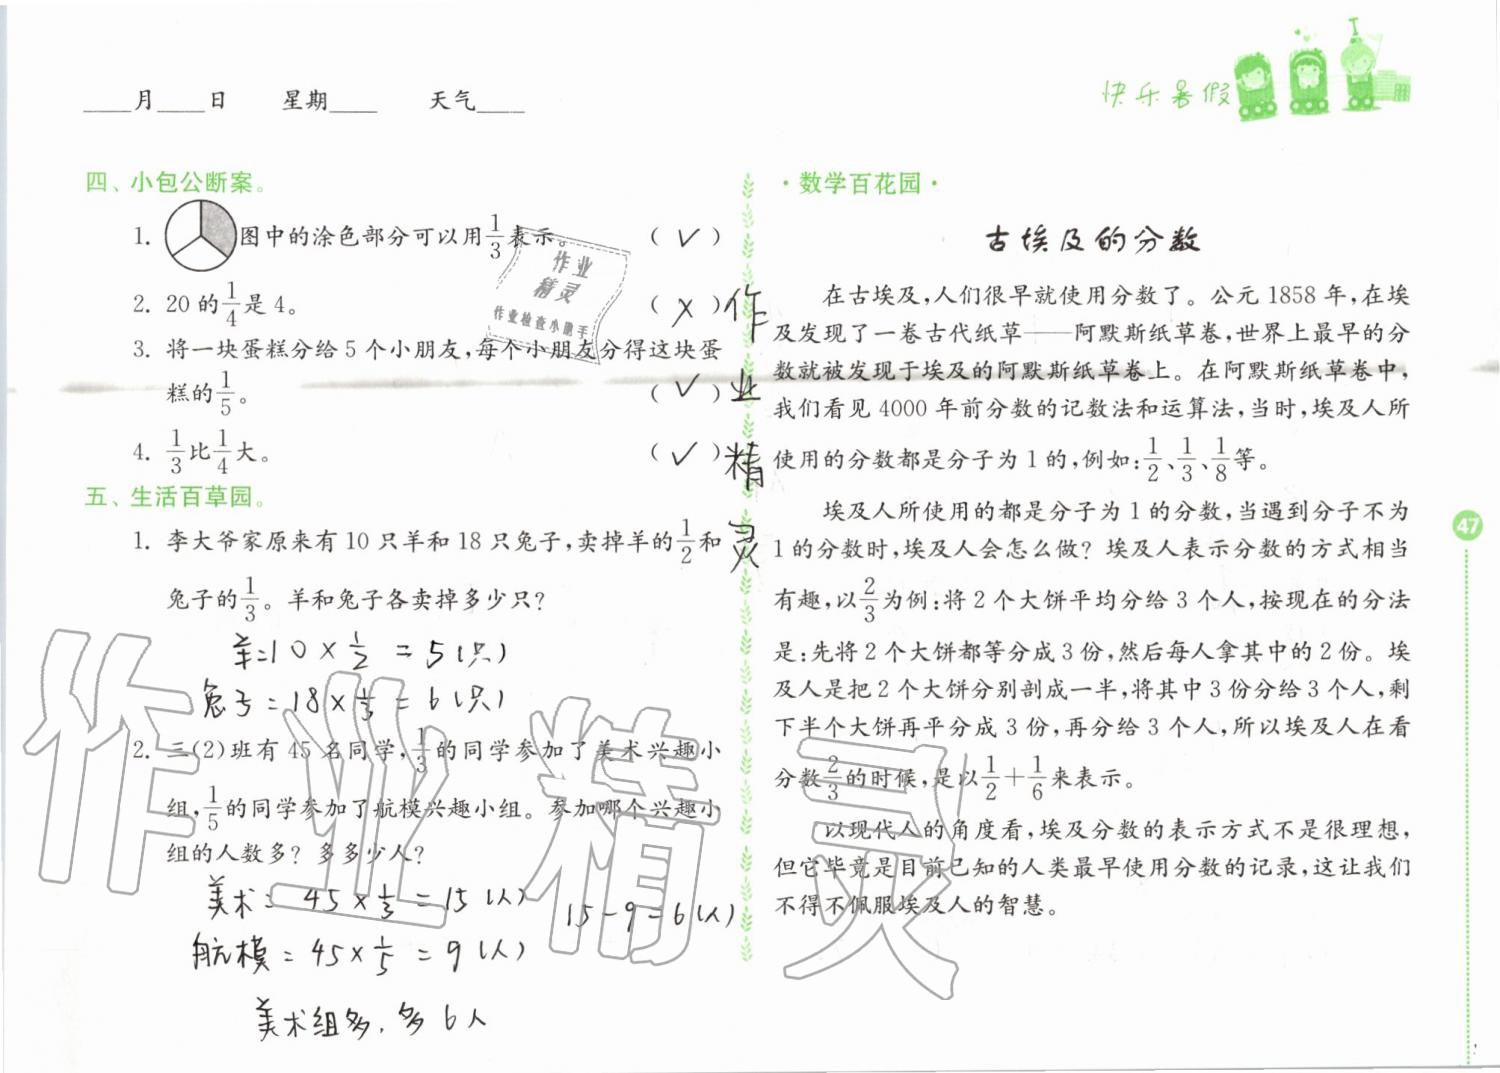 ____月____日 星期____ 天气____
快乐暑假
四、小包公断案。
1. 图中的涂色部分可以用1/3表示。 ( ✓ )
2. 20的1/4是4。 ( × )
3. 将一块蛋糕分给5个小朋友,每个小朋友分得这块蛋
糕的1/5。 ( ✓ )
4. 1/3比1/4大。 ( ✓ )
五、生活百草园。
1. 李大爷家原来有10只羊和18只兔子,卖掉羊的1/2和
兔子的1/3。羊和兔子各卖掉多少只?
羊=10×1/2=5(只)
兔子=18×1/3=6(只)
2. 三(2)班有45名同学,1/3的同学参加了美术兴趣小
组,1/5的同学参加了航模兴趣小组。参加哪个兴趣小
组的人数多?多多少人?
美术=45×1/3=15(人)
15-9=6(人)
航模=45×1/5=9(人)
美术组多,多6人
作业精灵
作业
精灵
作业检查小助手
作业精灵
·数学百花园·
古埃及的分数
在古埃及,人们很早就使用分数了。公元1858年,在埃
及发现了一卷古代纸草——阿默斯纸草卷,世界上最早的分
数就被发现于埃及的阿默斯纸草卷上。在阿默斯纸草卷中,
我们看见4000年前分数的记数法和运算法,当时,埃及人所
使用的分数都是分子为1的,例如:1/2、1/3、1/8等。
埃及人所使用的都是分子为1的分数,当遇到分子不为
1的分数时,埃及人会怎么做?埃及人表示分数的方式相当
有趣,以2/3为例:将2个大饼平均分给3个人,按现在的分法
是:先将2个大饼都等分成3份,然后每人拿其中的2份。埃
及人是把2个大饼分别剖成一半,将其中3份分给3个人,剩
下半个大饼再平分成3份,再分给3个人,所以埃及人在看
分数2/3的时候,是以1/2+1/6来表示。
以现代人的角度看,埃及分数的表示方式不是很理想,
但它毕竟是目前已知的人类最早使用分数的记录,这让我们
不得不佩服埃及人的智慧。
47